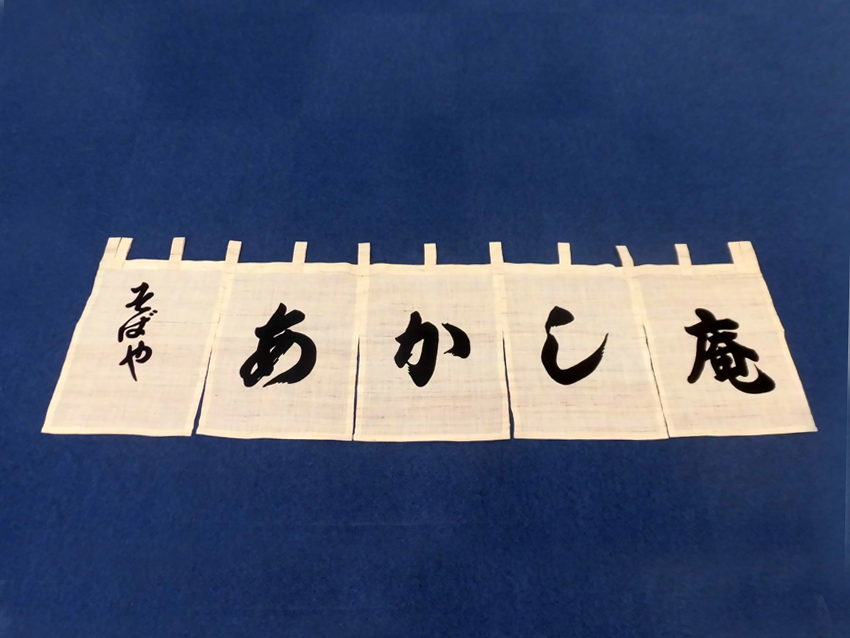 そばや
あかし庵